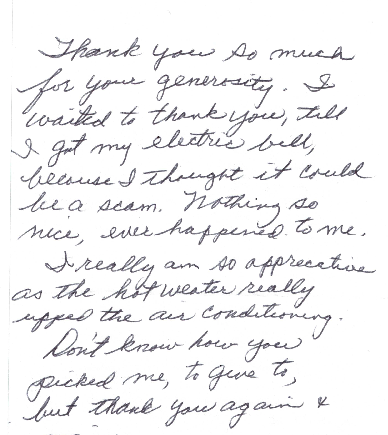 Thank you so much
for your generosity. I
waited to thank you, till
I got my electric bill,
because I thought it could
be a scam. Nothing so
nice, ever happened to me.
I really am so apprecative
as the hot weater really
upped the air conditioning.
Don't know how you
picked me, to give to,
but thank you again &